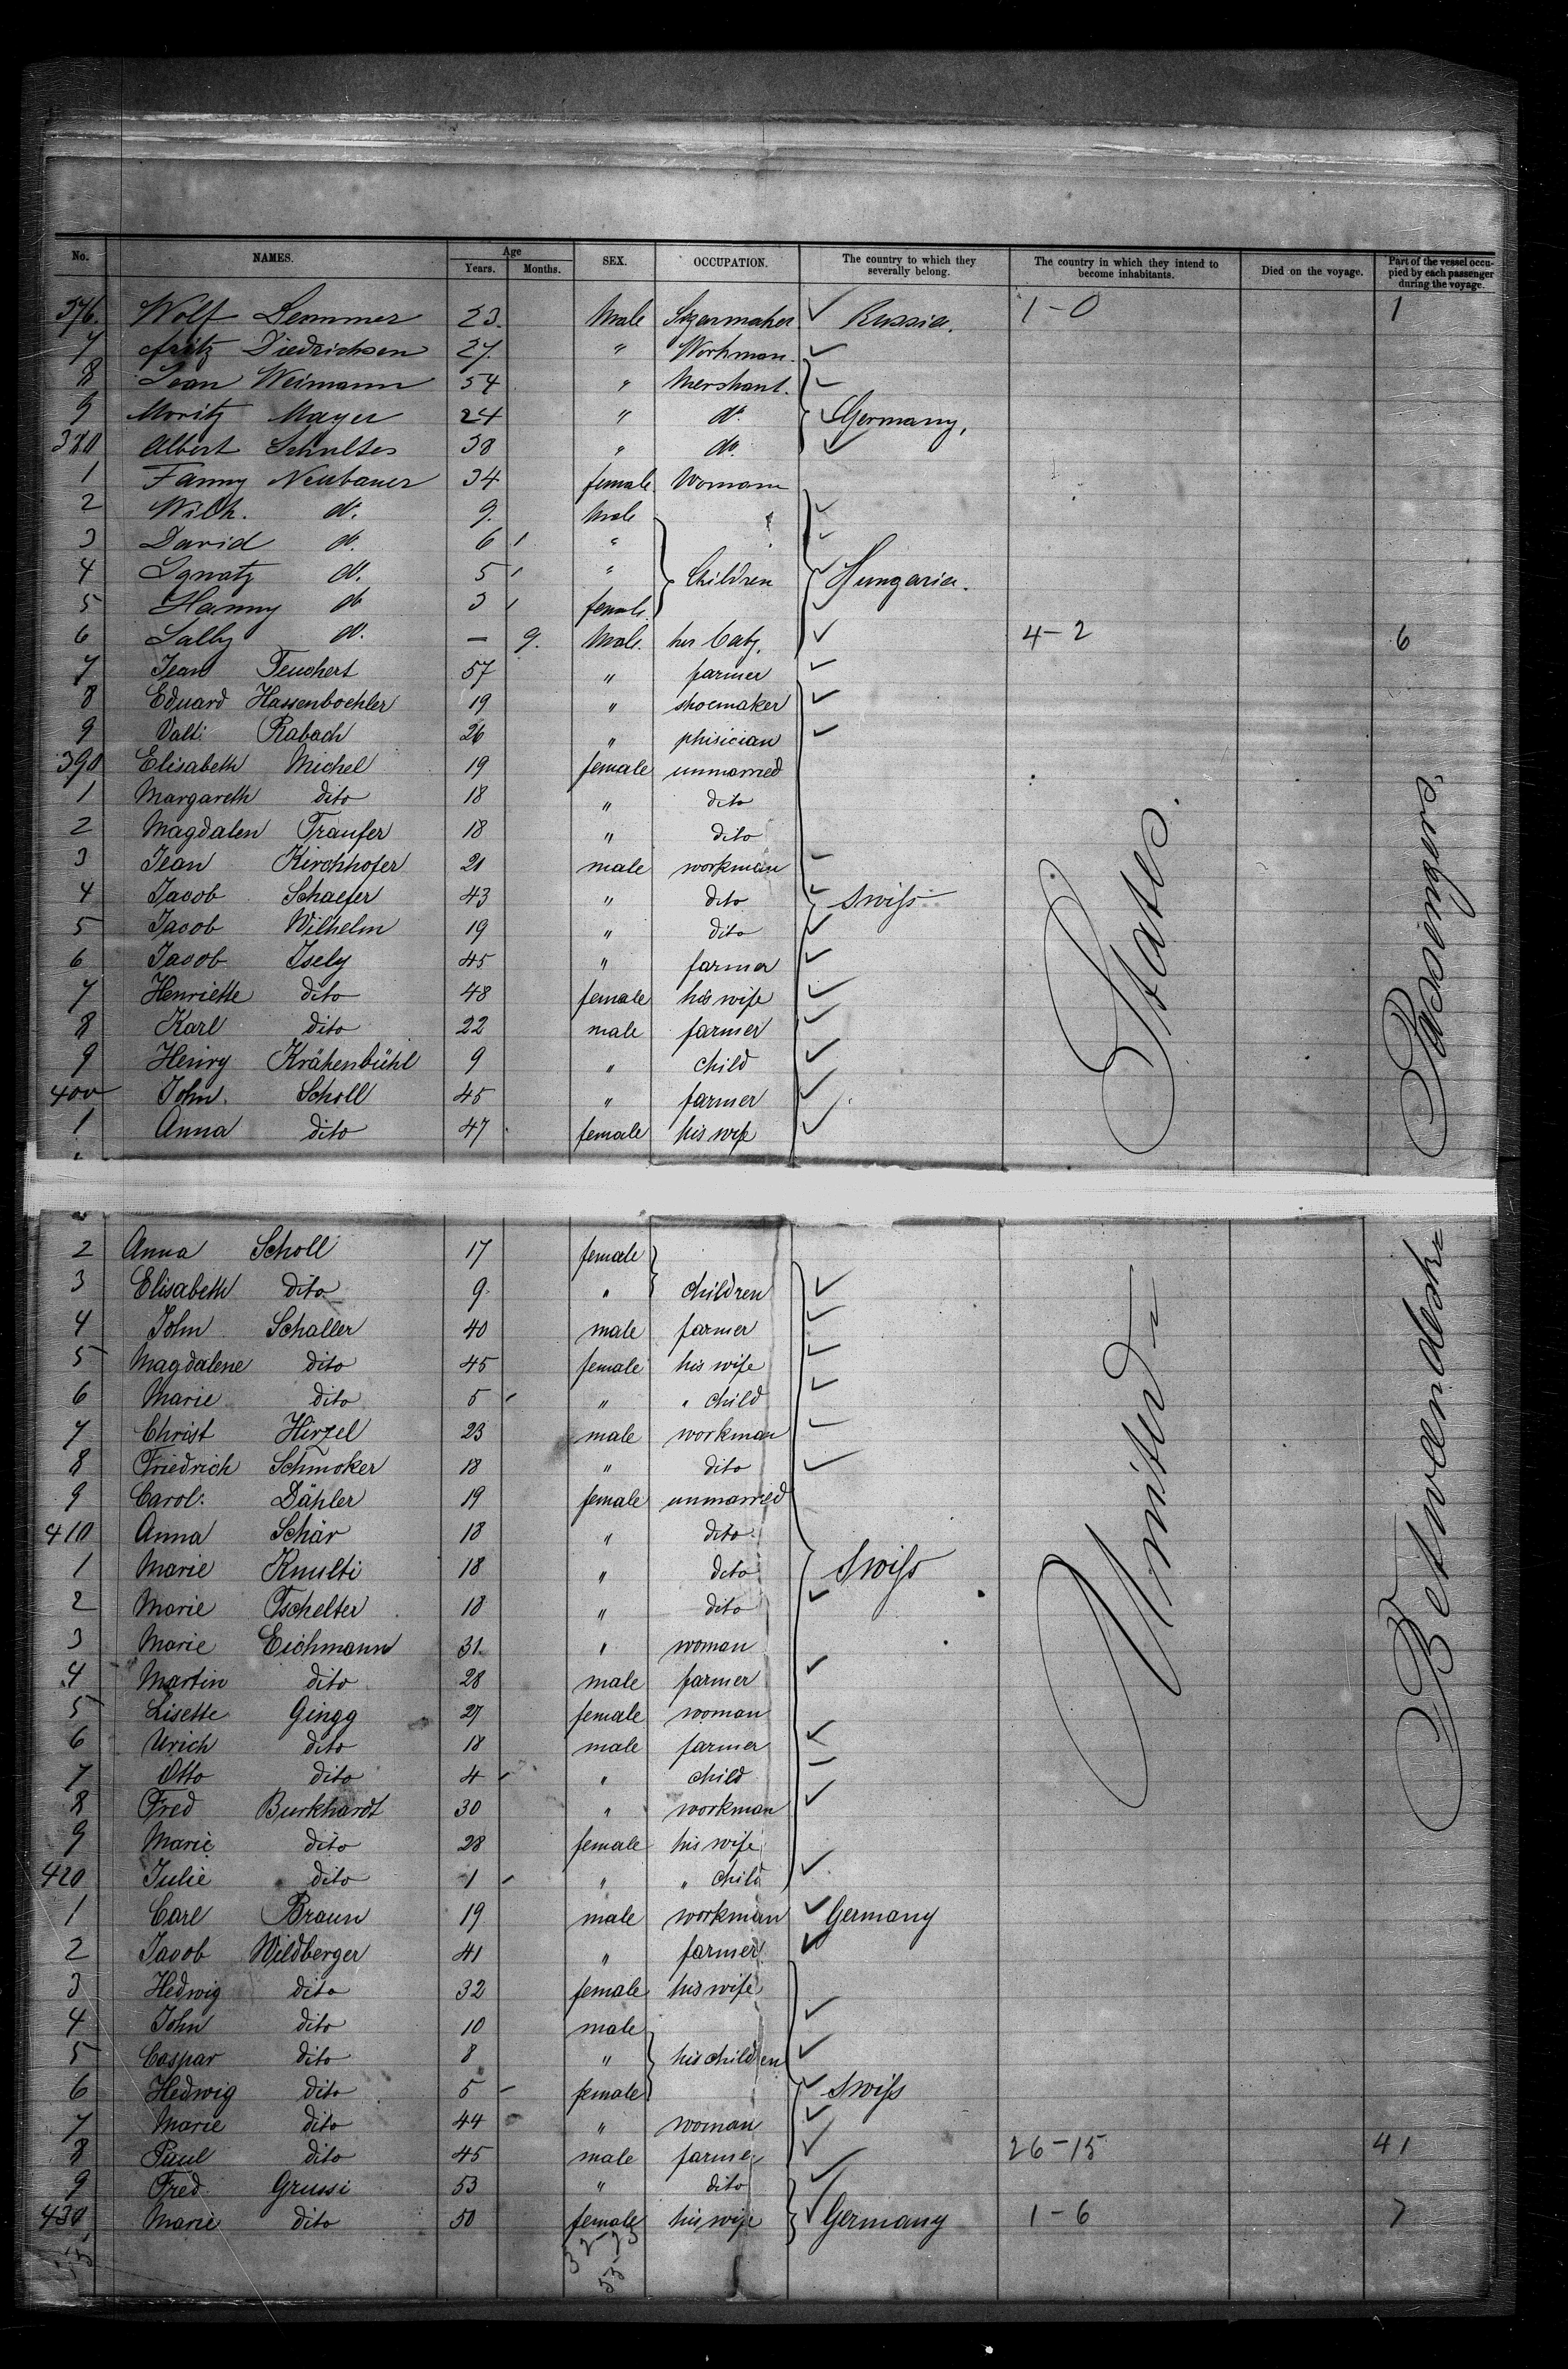 No. NAMES. Age Years. Months. SEX. OCCUPATION. The country to which they severally belong. The country in which they intend to become inhabitants. Died on the voyage. Part of the vessel occupied by each passenger during the voyage.
376. Wolf Lemmer 23. Male Segarmaker ✓ Russia. 1-0 1
7 Fritz Diedrichsen 27. " Workman. ✓
8 Jean Weimann 54 " Mershant. ✓
9 Moritz Mayer 24 " do. ✓ Germany.
380 Albert Schultes 38 " do. ✓
1 Fanny Neubauer 34 female Womann
2 Wilh. do. 9. Male ✓
3 David do. 6 " ✓
4 Ignatz do. 5 " Children ✓ Hungaria.
5 Hanny do 3 female ✓
6 Sally do. — 9. Male. her baby. ✓ 4-2 6
7 Jean Teuchert 57 " farmer ✓
8 Eduard Hassenboehler 19 " shoemaker ✓
9 Valt: Rabach 26 " phisician ✓
390 Elisabeth Michel 19 female unmarried
1 Margareth dito 18 " dito
2 Magdalen Traufer 18 " dito
3 Jean Kirchhofer 21 male workman ✓
4 Jacob Schaefer 43 " dito ✓ Swiss
5 Jacob Wilhelm 19 " dito ✓
6 Jacob Isely 45 " farmer ✓
7 Henriette dito 48 female his wife ✓
8 Karl dito 22 male farmer ✓
9 Henry Krähenbühl 9 " child ✓
400 John. Scholl 45 " farmer ✓
1 Anna dito 47 female his wife ✓
2 Anna Scholl 17 female
3 Elisabeth dito 9 " children ✓
4 John Schaller 40 male farmer ✓
5 Magdalene dito 45 female his wife ✓
6 Marie dito 5 " " child ✓
7 Christ Hirzel 23 male workman ✓
8 Friedrich Schmoker 18 " dito ✓
9 Carol: Dähler 19 female unmarried
410 Anna Schär 18 " dito
1 Marie Knulti 18 " dito Swiss
2 Marie Tschelter 18 " dito ✓
3 Marie Eichmann 31 " woman
4 Martin dito 28 male farmer ✓
5 Lisette Gingg 27 female woman
6 Urich dito 18 male farmer ✓
7 Otto dito 4 " child ✓
8 Fred Burkhardt 30 " workman ✓
9 Marie dito 28 female his wife
420 Julie dito 1 " " child ✓
1 Carl Braun 19 male workman ✓ Germany
2 Jacob Wildberger 41 " farmer ✓
3 Hedwig dito 32 female his wife
4 John dito 10 male ✓
5 Caspar dito 8 " his children ✓
6 Hedwig dito 5 female ✓ Swiss
7 Marie dito 44 " woman ✓
8 Paul dito 45 male farmer ✓ 26-15 41
9 Fred Grussi 53 " dito ✓
430 Marie dito 50 female his wife ✓ Germany 1-6 7
United States.
Betweendeck Passengers.